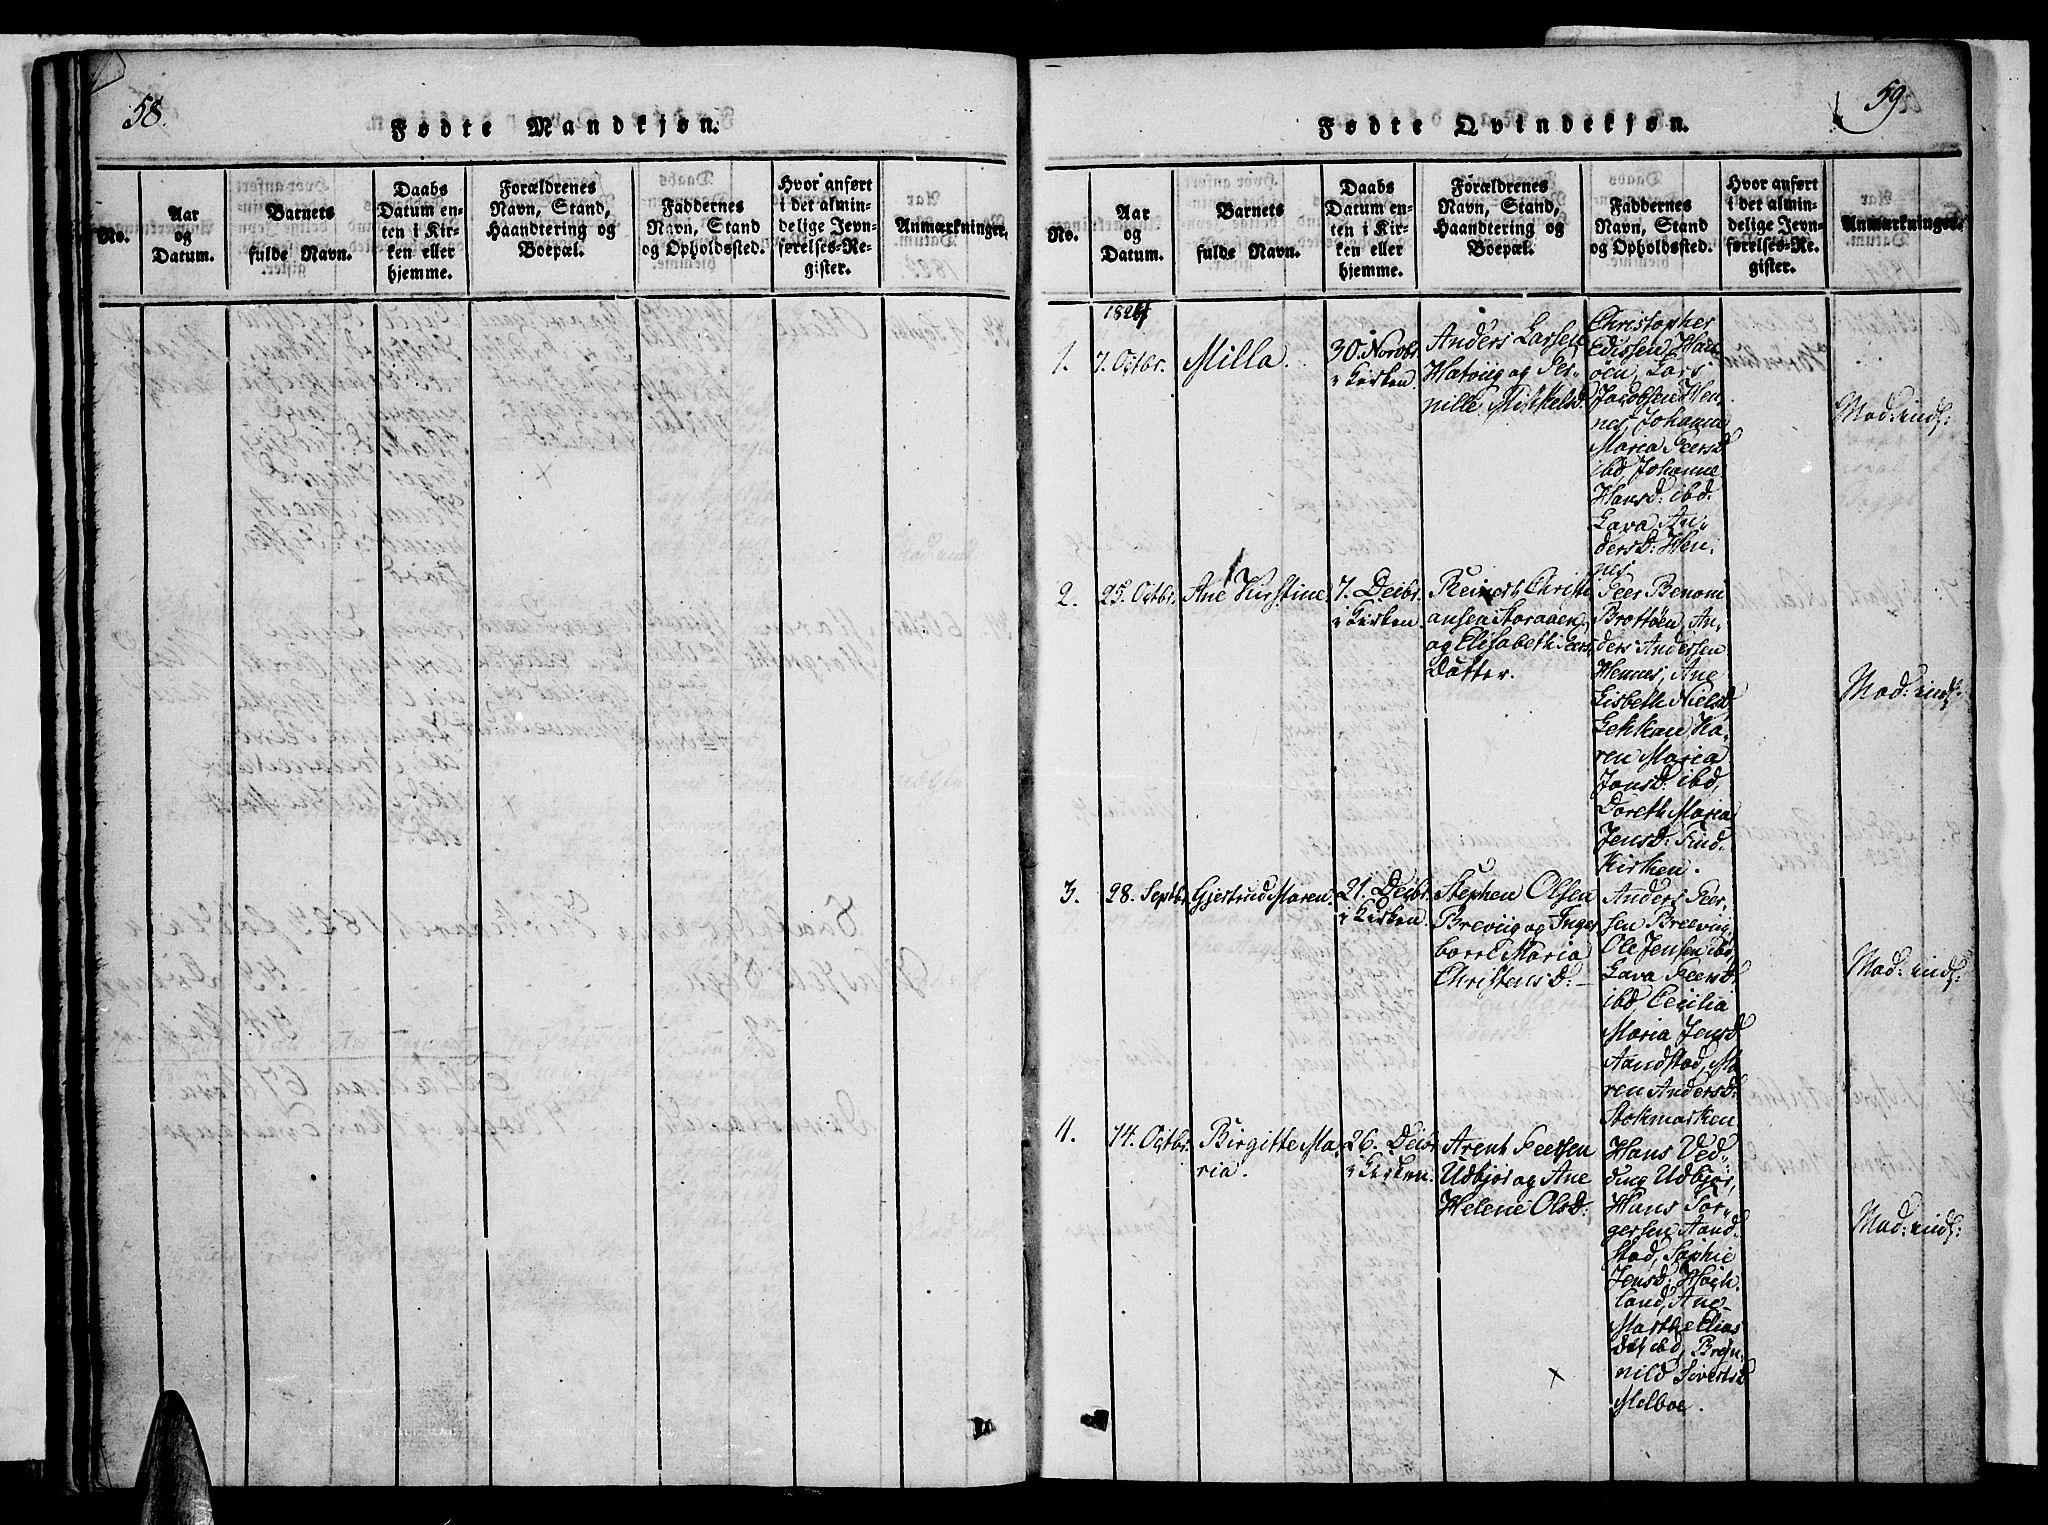 58.
Fødte Mandkjøn.
No.
Aar
og
Datum.
Barnets
fulde Navn.
Daabs
Datum en-
ten i Kir-
ken eller
hjemme.
Forældrenes
Navn, Stand,
Haandtering og
Boepæl.
Faddernes
Navn, Stand
og Opholdssted.
Hvor anført
i det almin-
delige Jevn-
førelses-Re-
gister.
Anmærkninger.
59.
Fødte Qvindekjøn.
No.
Aar
og
Datum.
Barnets
fulde Navn.
Daabs
Datum en-
ten i Kir-
ken eller
hjemme.
Forældrenes
Navn, Stand,
Haandtering og
Boepæl.
Faddernes
Navn, Stand
og Opholdssted.
Hvor anført
i det almin-
delige Jevn-
førelses-Re-
gister.
Anmærkninger.
1.
7. Octbr.
Milla.
30. Novbr.
i Kirken.
Anders Larsen
Hatviig og Per-
nille Mikkelsd.
Christopher
Edissen
Lars
Jacobsen Hen-
nes, Johanna
Maria Peersd
ibd, Johanne
Hansd: ibd:
Lava An-
dersd: Hen-
nes
Mod: inds:
2.
25. Octbr.
Ane Kirstine.
7. Decbr.
i Kirken.
Reinert Christi
ansen Storaaen,
og Elisabeth Peers
Datter.
Peer Benoni
Brottøen, An-
ders Andersen
Hennes, Ane
Lisbeth Nielsd
Ka-
ren Maria
Jonsd: ibd,
Doreth Maria
Jensd: Find-
Kirken.
Mod: inds:
3.
28. Septbr.
Gjertrud Maren.
21. Decbr.
i Kirken.
Stephen Olsen
Breviig og Inger
borre Maria
Christensd:
Anders Peer-
sen Breeviig,
Ole Jensen ibd,
Lava Peersd
ibd, Cecilia
Maria Jensd
Aandstad, Ma
ren Andersd:
Stokmarken
Mod: inds:
4.
14. Octbr.
Birgitte Ma-
ria.
26. Decbr.
i Kirken.
Arent Peersen
Udbjør og Ane
Helene Olsd:
Hans Ved-
ding Udbjør,
Hans Tor-
gersen Aand-
stad, Sophie
Jensd: Haah-
land, Ane
Marthe Elias
dat ibd, Bryn-
nild Sivertsd
Melboe.
Mod: inds: